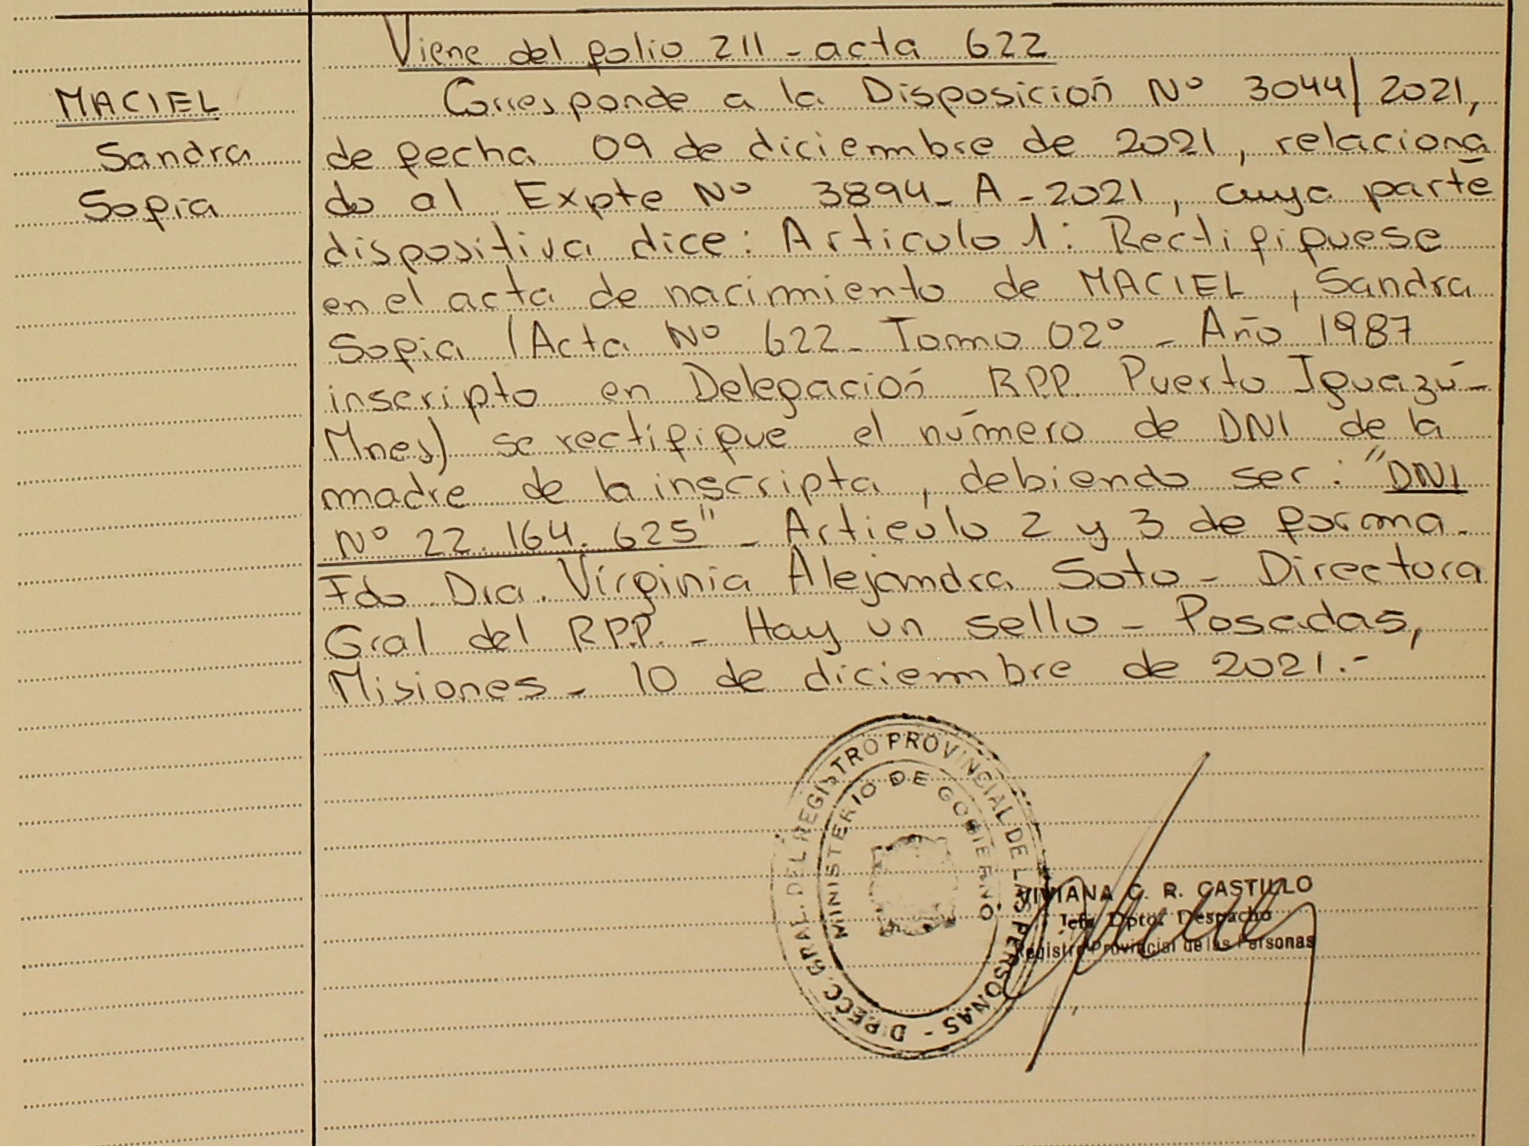 Viene del folio 211 - acta 622
MACIEL
Sandra
Sofia
Corresponde a la Disposición Nº 3044/2021,
de fecha 09 de diciembre de 2021, relaciona
do al Expte Nº 3894_ A - 2021, cuya parte
dispositiva dice: Articulo 1: Rectifiquese
en el acta de nacimiento de MACIEL, Sandra
Sofia (Acta Nº 622_ Tomo 02º - Año 1987
inscripto en Delegación RPP. Puerto Iguazú-
Mnes) se rectifique el número de DNI de la
madre de la inscripta, debiendo ser: "DNI
Nº 22.164.625" - Articulo 2 y 3 de forma.
Fdo. Dra. Virginia Alejandra Soto - Directora
Gral del R.P.P. - Hay un sello - Posadas,
Misiones - 10 de diciembre de 2021.-
DIRECC. GRAL. DEL REGISTRO PROVINCIAL DE LAS PERSONAS -
MINISTERIO DE GOBIERNO
VIVIANA C. R. CASTILLO
Jefa Dpto. Despacho
Registro Provincial de las Personas